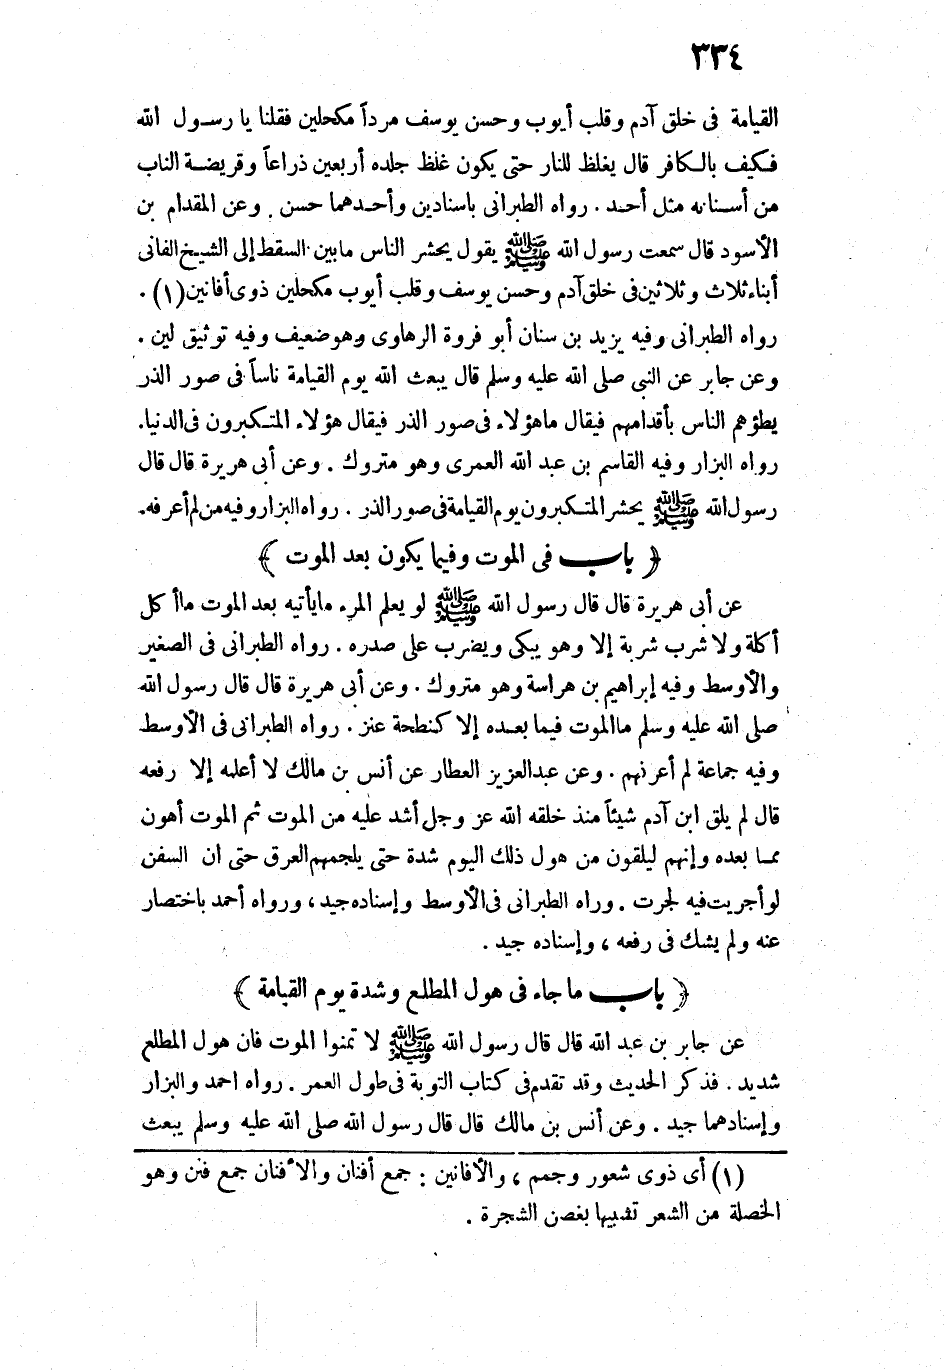 ٣٣٤
القيامة فى خلق آدم وقلب أيوب وحسن يوسف مرداً مكحلين فقلنا يا رسول الله
فكيف بالكافر قال يغلظ للنار حتى يكون غلظ جلده أربعين ذراعاً وقريضة الناب
من أسنانه مثل أحد . رواه الطبرانى باسنادين وأحدهما حسن . وعن المقدام بن
الأسود قال سمعت رسول الله ﷺ يقول يحشر الناس مابين السقط إلى الشيخ الفانى
أبناء ثلاث وثلاثين فى خلق آدم وحسن يوسف وقلب أيوب مكحلين ذوى أفانين (١) .
رواه الطبرانى وفيه يزيد بن سنان أبو فروة الرهاوى وهو ضعيف وفيه توثيق لين .
وعن جابر عن النبى صلى الله عليه وسلم قال يبعث الله يوم القيامة ناساً فى صور الذر
يطؤهم الناس بأقدامهم فيقال ماهؤلاء فى صور الذر فيقال هؤلاء المتكبرون فى الدنيا.
رواه البزار وفيه القاسم بن عبد الله العمرى وهو متروك . وعن أبى هريرة قال قال
رسول الله ﷺ يحشر المتكبرون يوم القيامة فى صور الذر . رواه البزار وفيه من لم أعرفه.
﴿ باب فى الموت وفيما يكون بعد الموت ﴾
عن أبى هريرة قال قال رسول الله ﷺ لو يعلم المرء مايأتيه بعد الموت ماأكل
أكلة ولا شرب شربة إلا وهو يبكى ويضرب على صدره . رواه الطبرانى فى الصغير
والأوسط وفيه إبراهيم بن هراسة وهو متروك . وعن أبى هريرة قال قال رسول الله
صلى الله عليه وسلم ماالموت فيما بعده إلا كنطحة عنز . رواه الطبرانى فى الأوسط
وفيه جماعة لم أعرفهم . وعن عبدالعزيز العطار عن أنس بن مالك لا أعلمه إلا رفعه
قال لم يلق ابن آدم شيئاً منذ خلقه الله عز وجل أشد عليه من الموت ثم الموت أهون
مما بعده وإنهم ليلقون من هول ذلك اليوم شدة حتى يلجمهم العرق حتى ان السفن
لو أجريت فيه لجرت . وراه الطبرانى فى الأوسط وإسناده جيد ، ورواه أحمد باختصار
عنه ولم يشك فى رفعه ، وإسناده جيد .
﴿ باب ما جاء فى هول المطلع وشدة يوم القيامة ﴾
عن جابر بن عبد الله قال قال رسول الله ﷺ لا تمنوا الموت فان هول المطلع
شديد . فذكر الحديث وقد تقدم فى كتاب التوبة فى طول العمر . رواه احمد والبزار
وإسنادهما جيد . وعن أنس بن مالك قال قال رسول الله صلى الله عليه وسلم يبعث
(١) أى ذوى شعور وجمم ، والأفانين : جمع أفنان والأفنان جمع فنن وهو
الخصلة من الشعر تشبيها بغصن الشجرة .